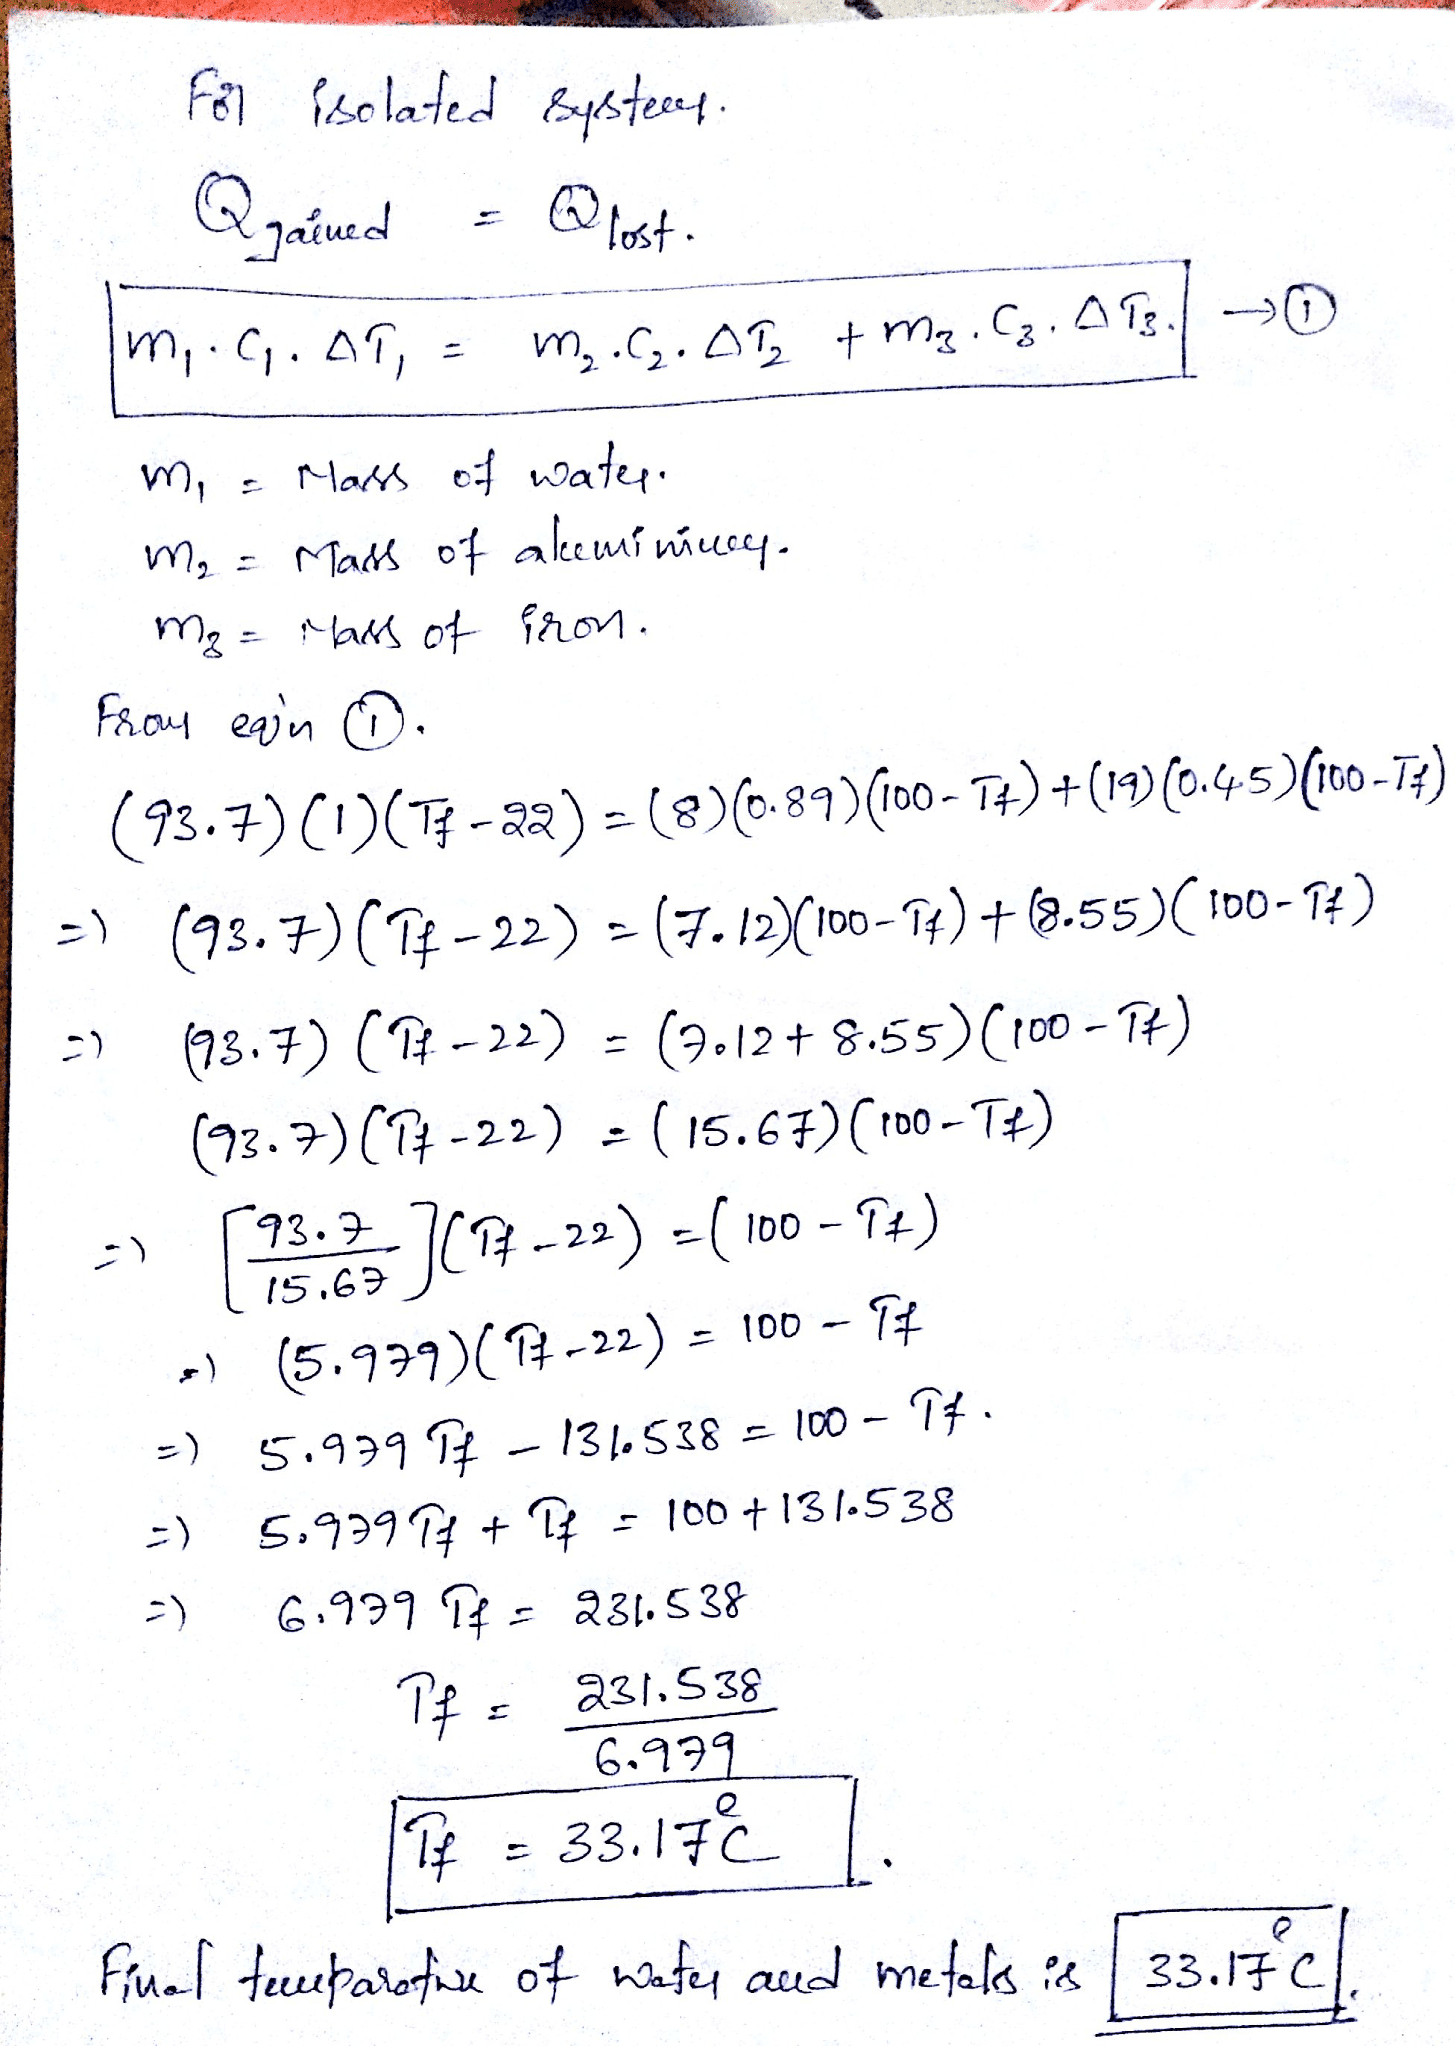 For isolated system.
Qgained = Qlost.
m₁.C₁.ΔT₁ = m₂.C₂.ΔT₂ + m₃.C₃.ΔT₃. → ①
m₁ = Mass of water.
m₂ = Mass of aluminium.
m₃ = Mass of iron.
From eq'n ①.
(93.7)(1)(Tf-22) = (8)(0.89)(100-Tf)+(19)(0.45)(100-Tf)
=) (93.7)(Tf-22) = (7.12)(100-Tf)+(8.55)(100-Tf)
=) (93.7)(Tf-22) = (7.12+8.55)(100-Tf)
(93.7)(Tf-22) = (15.67)(100-Tf)
=) [93.7/15.67](Tf-22) = (100-Tf)
=) (5.979)(Tf-22) = 100-Tf
=) 5.979 Tf - 131.538 = 100 - Tf.
=) 5.979 Tf + Tf = 100+131.538
=) 6.979 Tf = 231.538
Tf = 231.538/6.979
Tf = 33.17°C.
Final temparature of water and metals is 33.17°C.